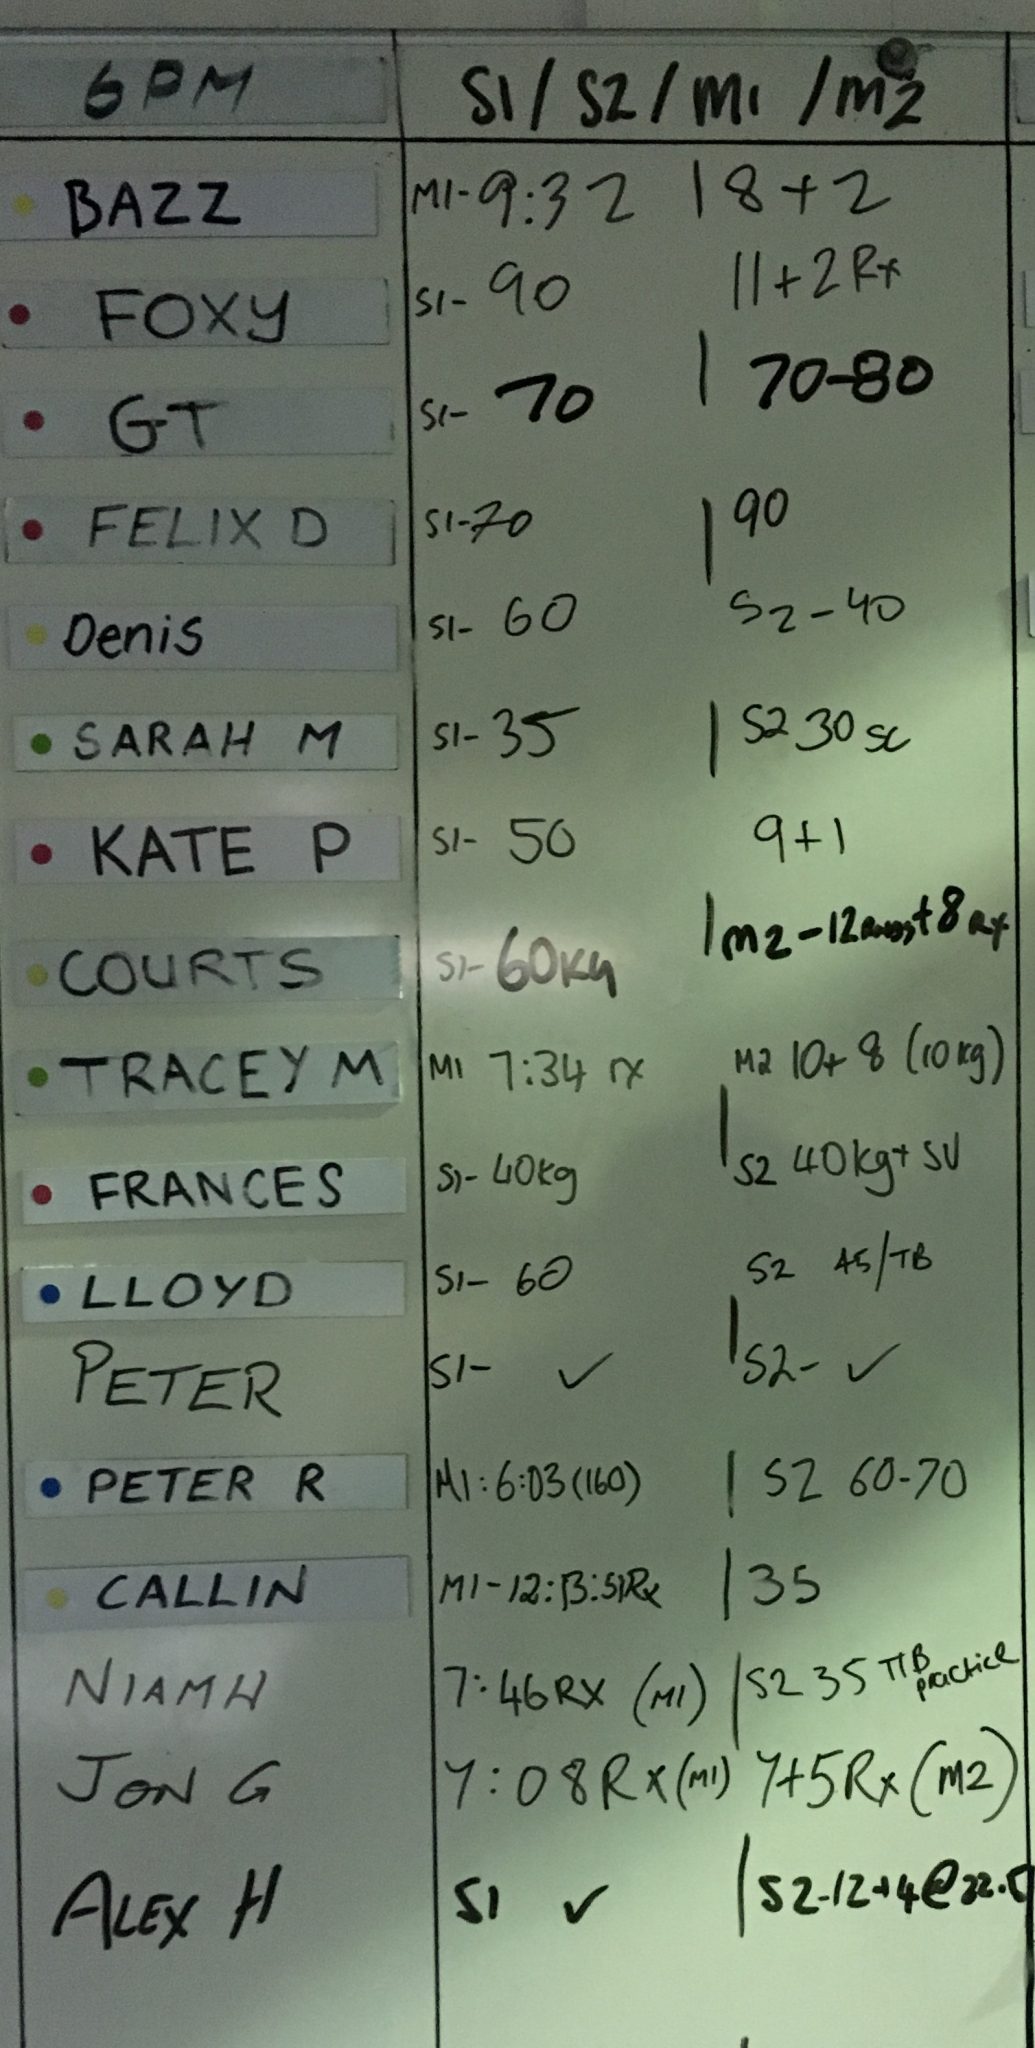 6PM S1/S2/M1/M2
BAZZ M1-9:32 | 8+2
FOXY S1-90 11+2 Rx
GT S1-70 | 70-80
FELIX D S1-70 | 90
Denis S1-60 S2-40
SARAH M S1-35 | S2 30 SC
KATE P S1-50 9+1
COURTS S1-60KG | M2-12 Rnds+8 Rx
TRACEY M M1 7:34 rx M2 10+8 (10kg)
FRANCES S1-40kg | S2 40kg+SU
LLOYD S1-60 S2 AS/TB
PETER S1- ✓ | S2- ✓
PETER R M1:6:03(160) | S2 60-70
CALLIN M1-12:13:51Rx | 35
NIAMH 7:46RX (M1) | S2 35 TTB practice
JON G 7:08Rx(M1) 7+5Rx(M2)
ALEX H S1 ✓ | S2-12+4@22.5